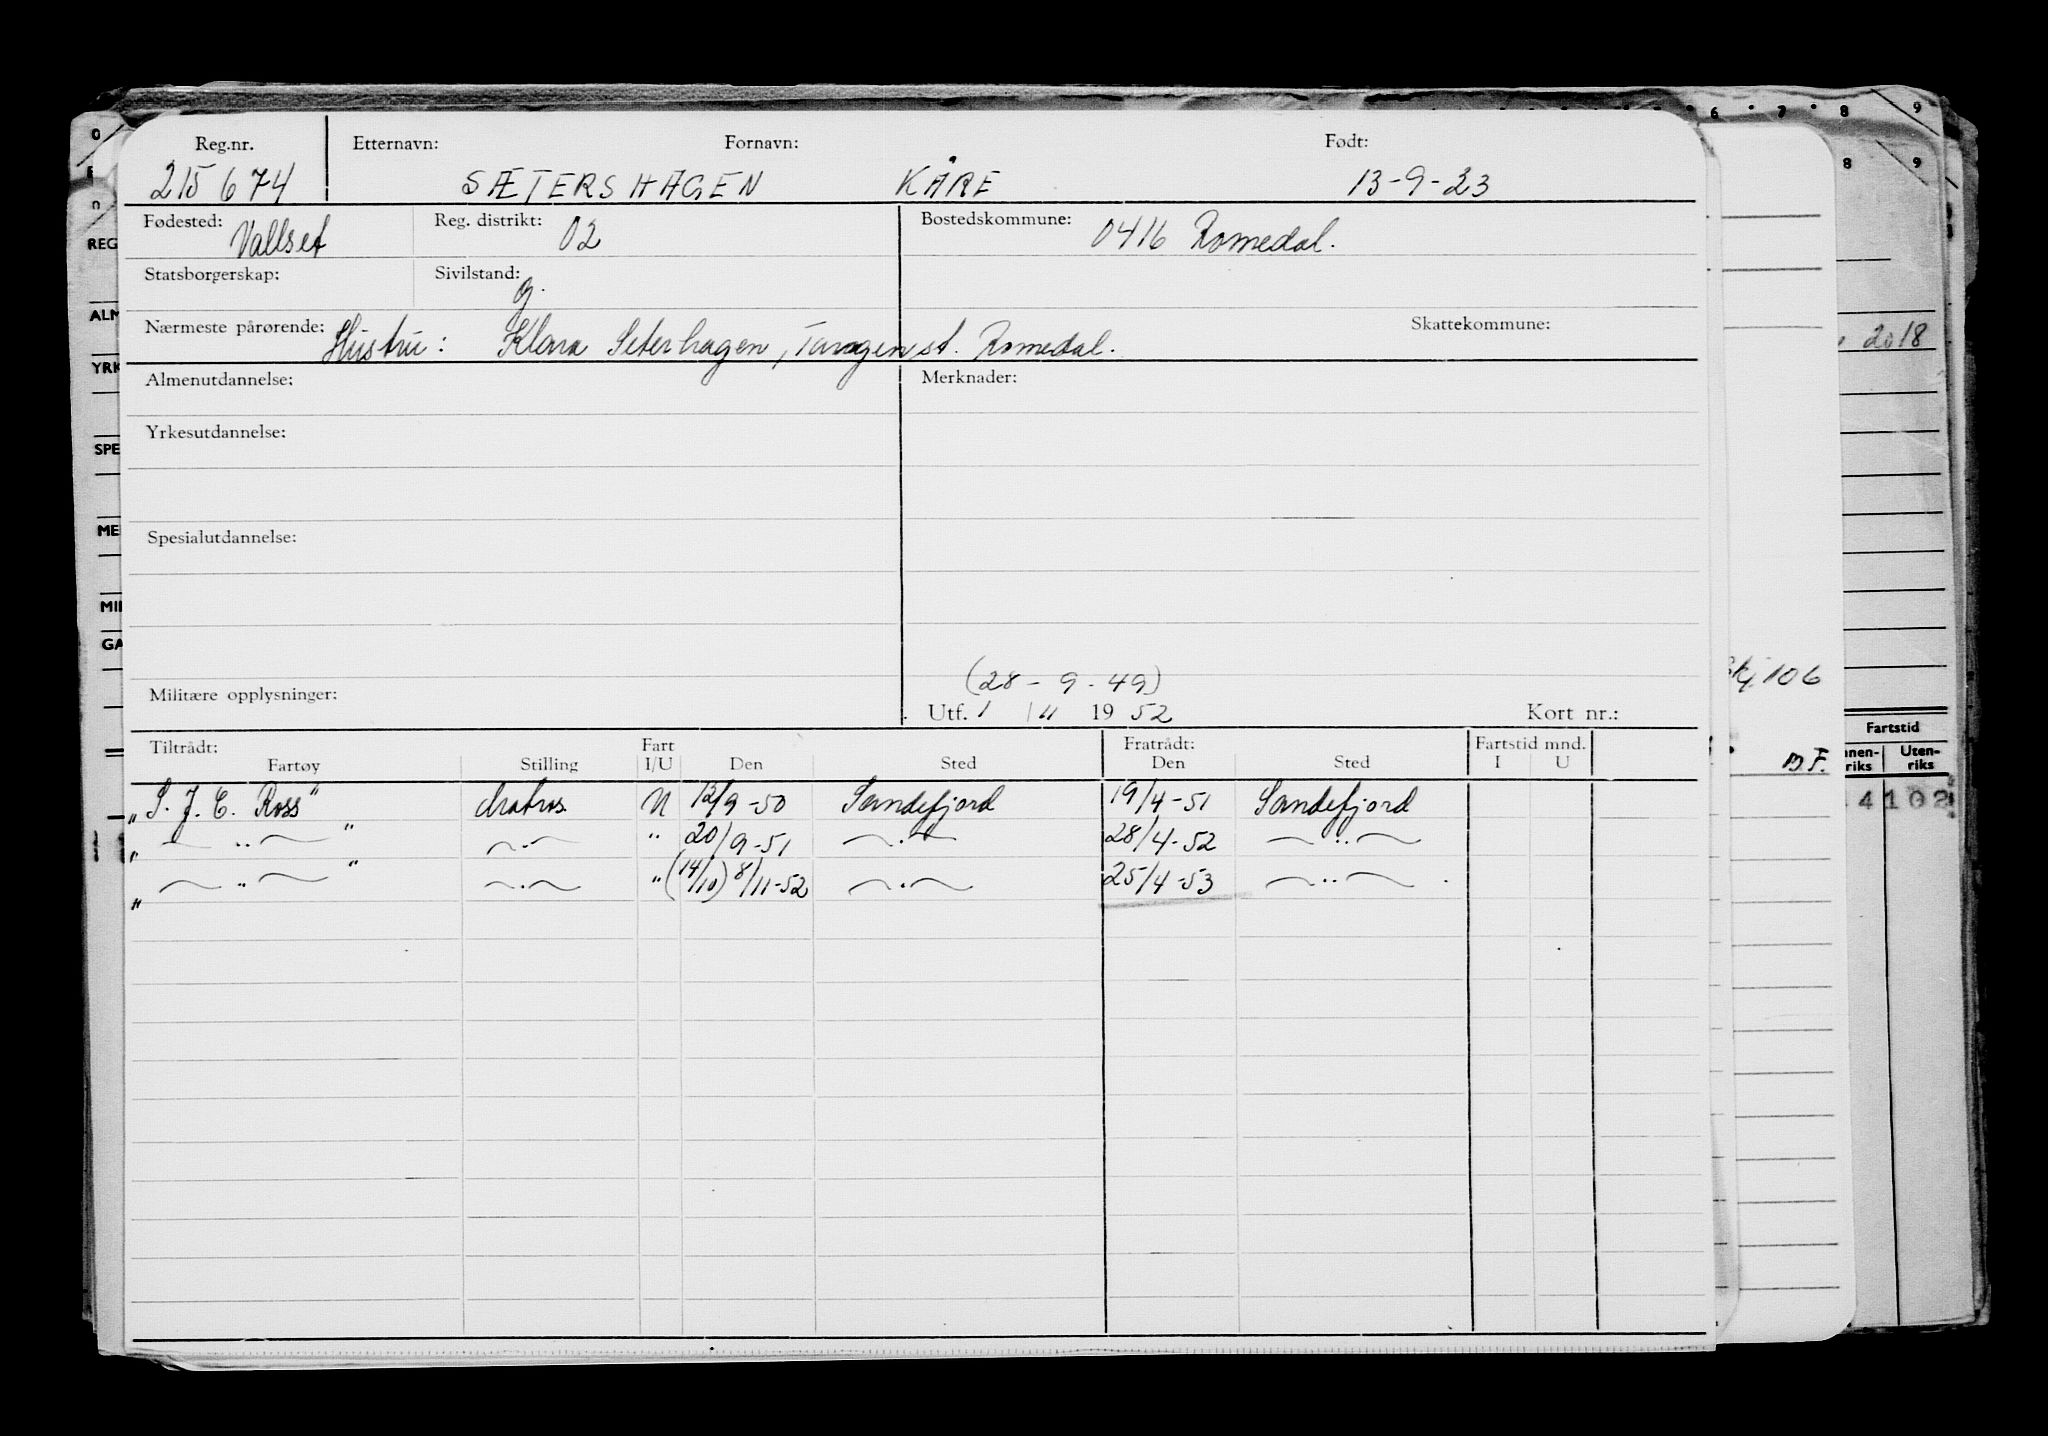 Reg.nr. Etternavn: Fornavn: Født:
215674 SÆTERSHAGEN KÅRE 13-9-23
Fødested: Vallset Reg. distrikt: 02 Bostedskommune: 0416 Romedal.
Statsborgerskap: Sivilstand: g.
Nærmeste pårørende: Hustru: Klara Seterhagen, Tangen st. Romedal. Skattekommune:
Almenutdannelse: Merknader:
Yrkesutdannelse:
Spesialutdannelse:
(28-9-49)
Militære opplysninger: Utf. 1/11 1952 Kort nr.:
Tiltrådt: Fart Fratrådt: Fartstid mnd.
Fartøy Stilling I/U Den Sted Den Sted I U
"S. J. C. Ross" Matros U 12/9-50 Sandefjord 19/4-51 Sandefjord
" — " — " — " — " 20/9-51 — " — 28/4-52 — " —
" — " — " — " — " (14/10) 8/11-52 — " — 25/4-53 — " —
0 6 7 8 9
8 9
n
REG
ALM
YRK
SPE
ME
MIL
GA
2018
106
Fartstid
nnen-riks Uten-riks
B.F.
4102